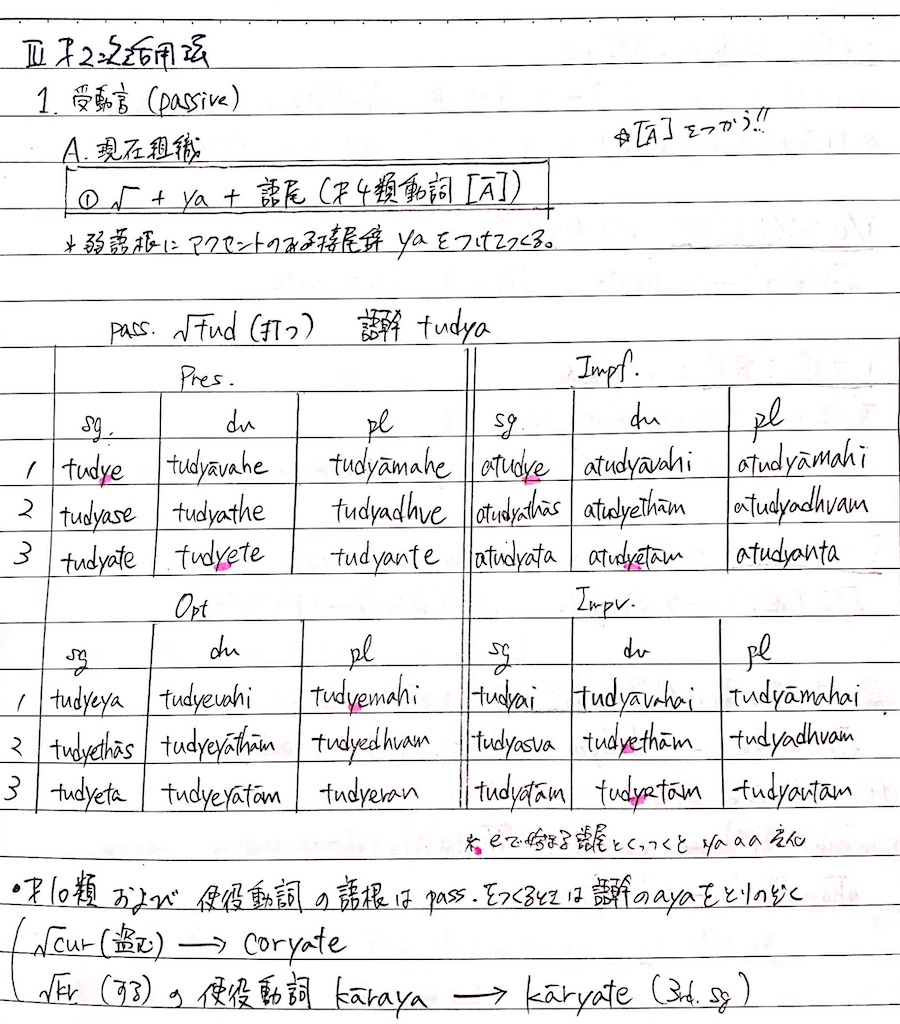 III 才2次活用法
1. 受動言 (passive)
A. 現在組織
☆[Ā] をつかう!!
① √ + ya + 語尾 (才4類動詞 [Ā])
* 弱語根にアクセントのある接尾辞 ya をつけてつくる。
pass. √tud (打つ) 語幹 tudya
Pres. Impf.
sg. du pl sg. du pl
1 tudye tudyāvahe tudyāmahe atudye atudyāvahi atudyāmahi
2 tudyase tudyathe tudyadhve atudyathās atudyethām atudyadhvam
3 tudyate tudyete tudyante atudyata atudyetām atudyanta
Opt Impv.
sg du pl sg du pl
1 tudyeya tudyevahi tudyemahi tudyai tudyāvahai tudyāmahai
2 tudyethās tudyeyāthām tudyedhvam tudyasva tudyethām tudyadhvam
3 tudyeta tudyeyātām tudyeran tudyatām tudyetām tudyantām
* eで始まる語尾とくっつくと ya の a
•才10類 および 使役動詞 の語根は pass. をつくるときは語幹のayaをとりのぞく
√cur (盗む) → coryate
√kr (する) の使役動詞 kāraya → kāryate (3rd. sg)